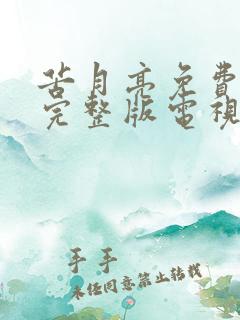 苦月亮免費
完整版電視
手手
未任同意禁止转载